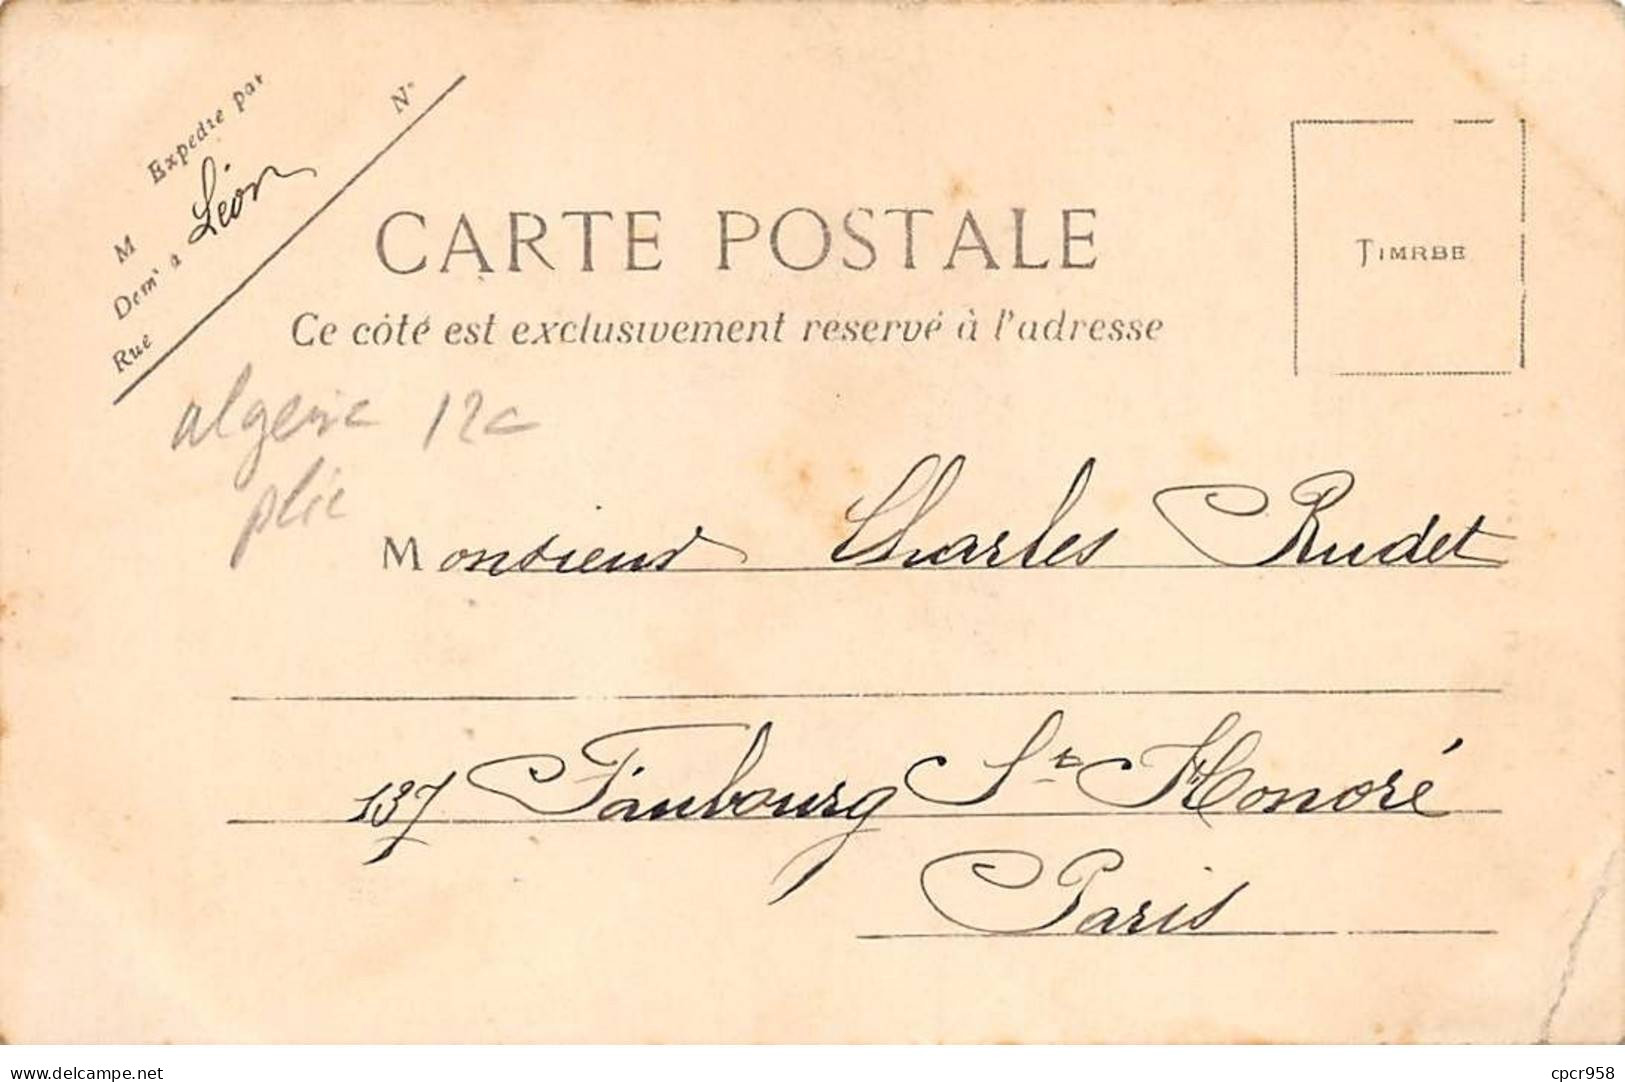 Expedie par
M
Demt a Léon
Rue
N°
CARTE POSTALE
Ce côté est exclusivement reservé à l'adresse
TIMRBE
algerie 12c
plie
Monsieur Charles Rudet
137 Faubourg St Honoré
Paris
delcampe.net
cpcr958